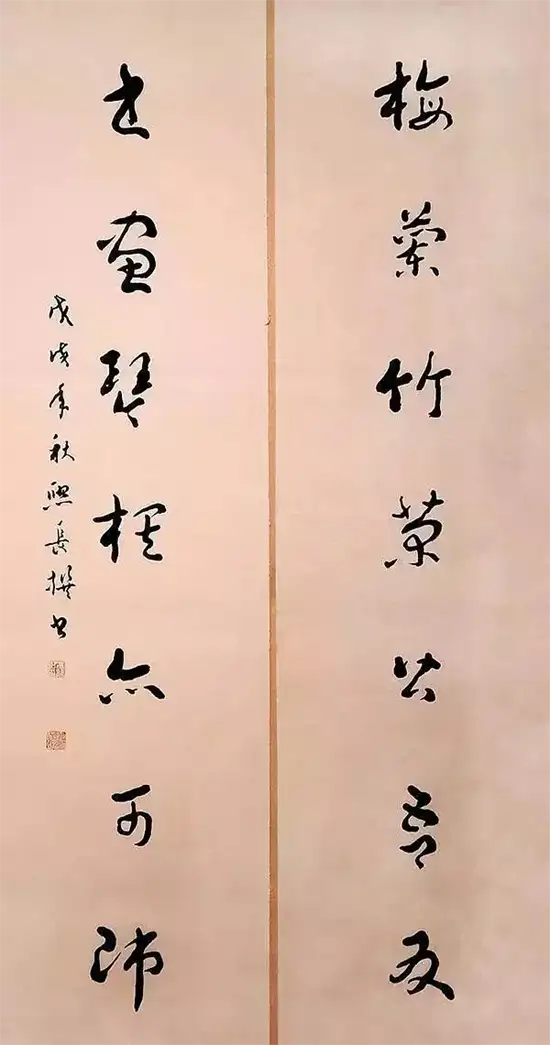 梅蘭竹菊皆吾友
書畫琴棋亦可師
戊戌年秋熙長撰書